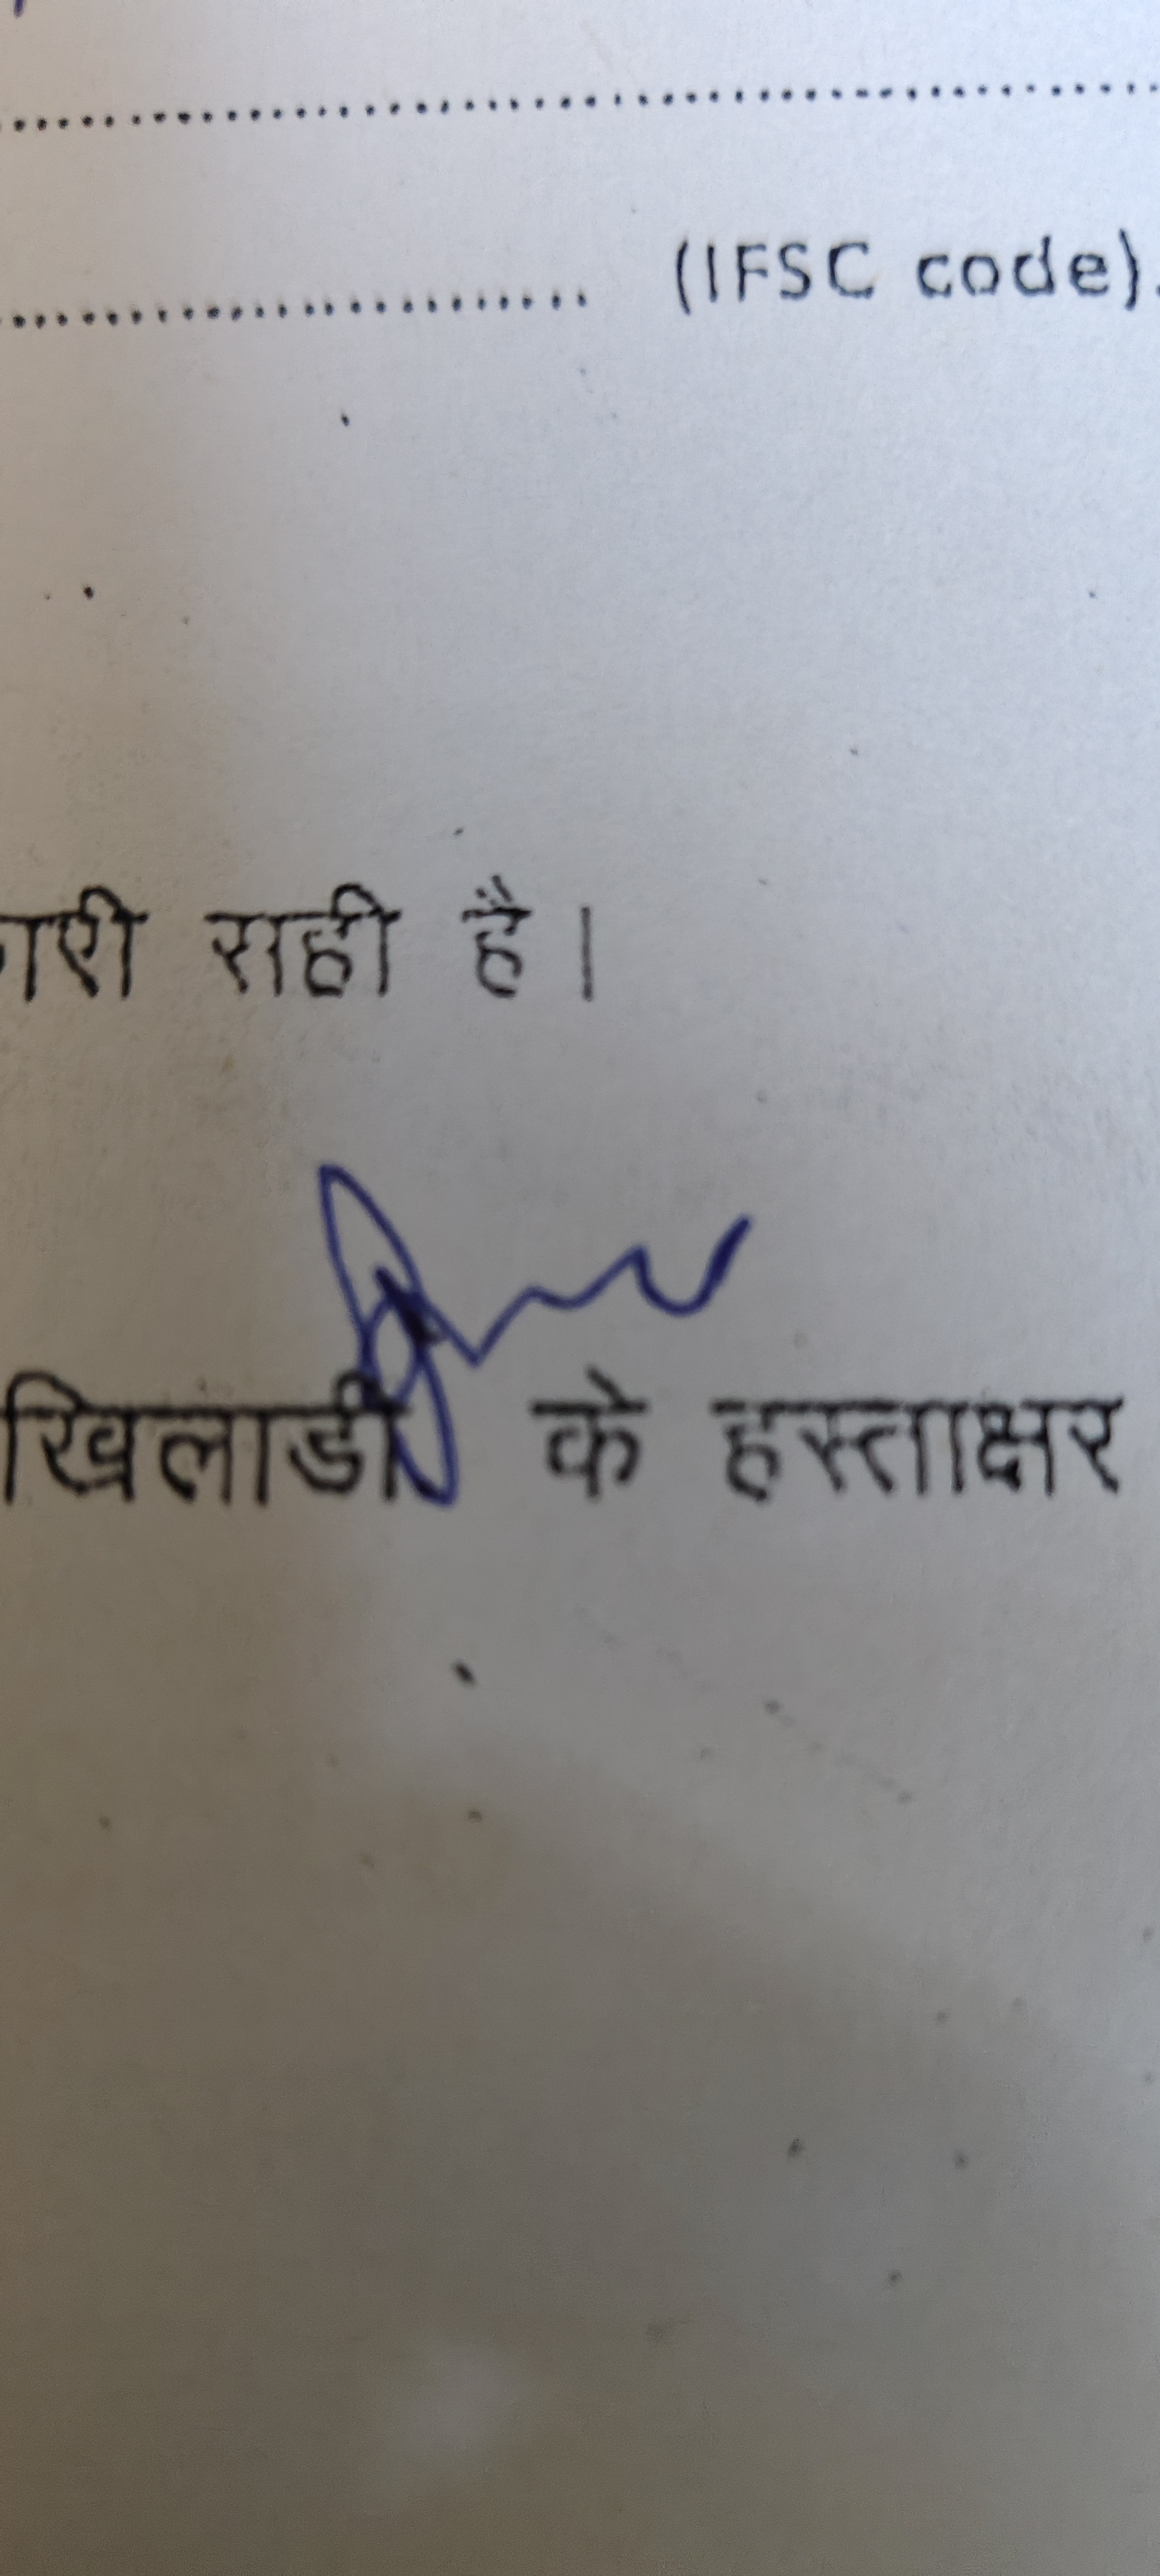 ........................................................
............................ (IFSC code).
री सही है।
खिलाडी के हस्ताक्षर